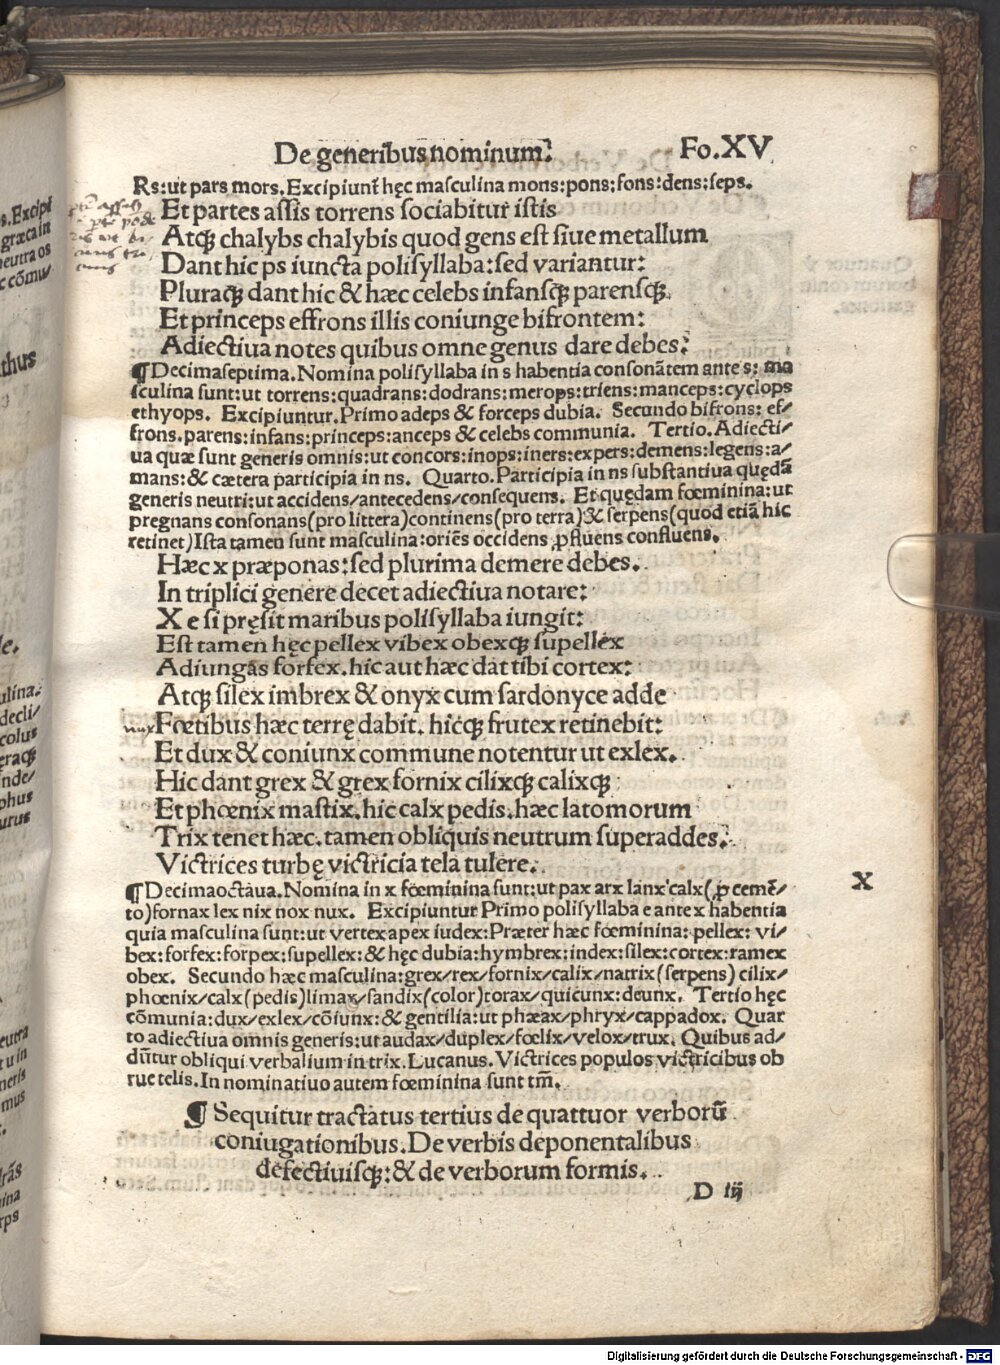 De generibus nominum. Fo.XV
Rs:ut pars mors.Excipiunt̃ hęc masculina mons:pons:fons:dens:seps.
Et partes assis torrens sociabitur istis
Atqꝫ chalybs chalybis quod gens est siue metallum
Dant hic ps iuncta polisyllaba:sed variantur:
Pluraqꝫ dant hic & hæc celebs infansqꝫ parensqꝫ.
Et princeps effrons illis coniunge bifrontem:
Adiectiua notes quibus omne genus dare debes.
¶Decimaseptima.Nomina polisyllaba in s habentia consonãtem ante s: ma
sculina sunt:ut torrens:quadrans:dodrans:merops:triens:manceps:cyclops
ethyops. Excipiuntur.Primo adeps & forceps dubia. Secundo bifrons: ef/
frons.parens:infans:princeps:anceps & celebs communia. Tertio.Adiecti/
ua quæ sunt generis omnis:ut concors:inops:iners:expers:demens:legens:a/
mans:& cætera participia in ns. Quarto.Participia in ns substantiua quędã
generis neutri:ut accidens/antecedens/consequens. Et quędam fœminina:ut
pregnans consonans(pro littera)continens(pro terra)& serpens(quod etiã hic
retinet)Ista tamen sunt masculina:oriẽs occidens ꝓfluens confluens.
Hæc x præponas:sed plurima demere debes.
In triplici genere decet adiectiua notare:
X e si pręsit maribus polisyllaba iungit:
Est tamen hęc pellex vibex obexqꝫ supellex
Adiungas forfex.hic aut hæc dat tibi cortex:
Atqꝫ silex imbrex & onyx cum sardonyce adde
nux Fœtibus hæc terrę dabit. hicqꝫ frutex retinebit:
Et dux & coniunx commune notentur ut exlex.
Hic dant grex & grex fornix cilixqꝫ calixqꝫ
Et phœnix mastix.hic calx pedis.hæc latomorum
Trix tenet hæc.tamen obliquis neutrum superaddes.
Victrices turbę victricia tela tulere.
X
¶Decimaoctaua.Nomina in x fœminina sunt:ut pax arx lanx calx(ꝓ cemẽ/
to)fornax lex nix nox nux. Excipiuntur Primo polisyllaba e ante x habentia
quia masculina sunt:ut vertex apex iudex:Præter hæc fœminina: pellex: vi/
bex:forfex:forpex:supellex:& hęc dubia:hymbrex:index:silex:cortex:ramex
obex. Secundo hæc masculina:grex/rex/fornix/calix/natrix(serpens) cilix/
phœnix/calx(pedis)limax/sandix(color)torax/quicunx:deunx. Tertio hęc
cõmunia:dux/exlex/cõiunx:& gentilia:ut phæax/phryx/cappadox. Quar
to adiectiua omnis generis:ut audax/duplex/fœlix/velox/trux. Quibus ad/
dũtur obliqui verbalium in trix. Lucanus. Victrices populos victricibus ob
rue telis.In nominatiuo autem fœminina sunt tm̃.
¶ Sequitur tractatus tertius de quattuor verborũ
coniugationibus.De verbis deponentalibus
defectiuisqꝫ:& de verborum formis.
D iij
Digitalisierung gefördert durch die Deutsche Forschungsgemeinschaft - DFG